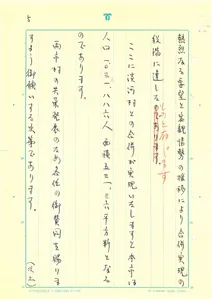 熱烈なる要望と客観情勢の推移により合併実現の
段階に達したのであります
ものと存じます
ここに淡河村との合併が実現いたしますと本市は
人口
面積五
平方粁となる
のであります。
両市村の共栄発展のため各位の御賛同を賜りま
すよう御願いする次第であります。